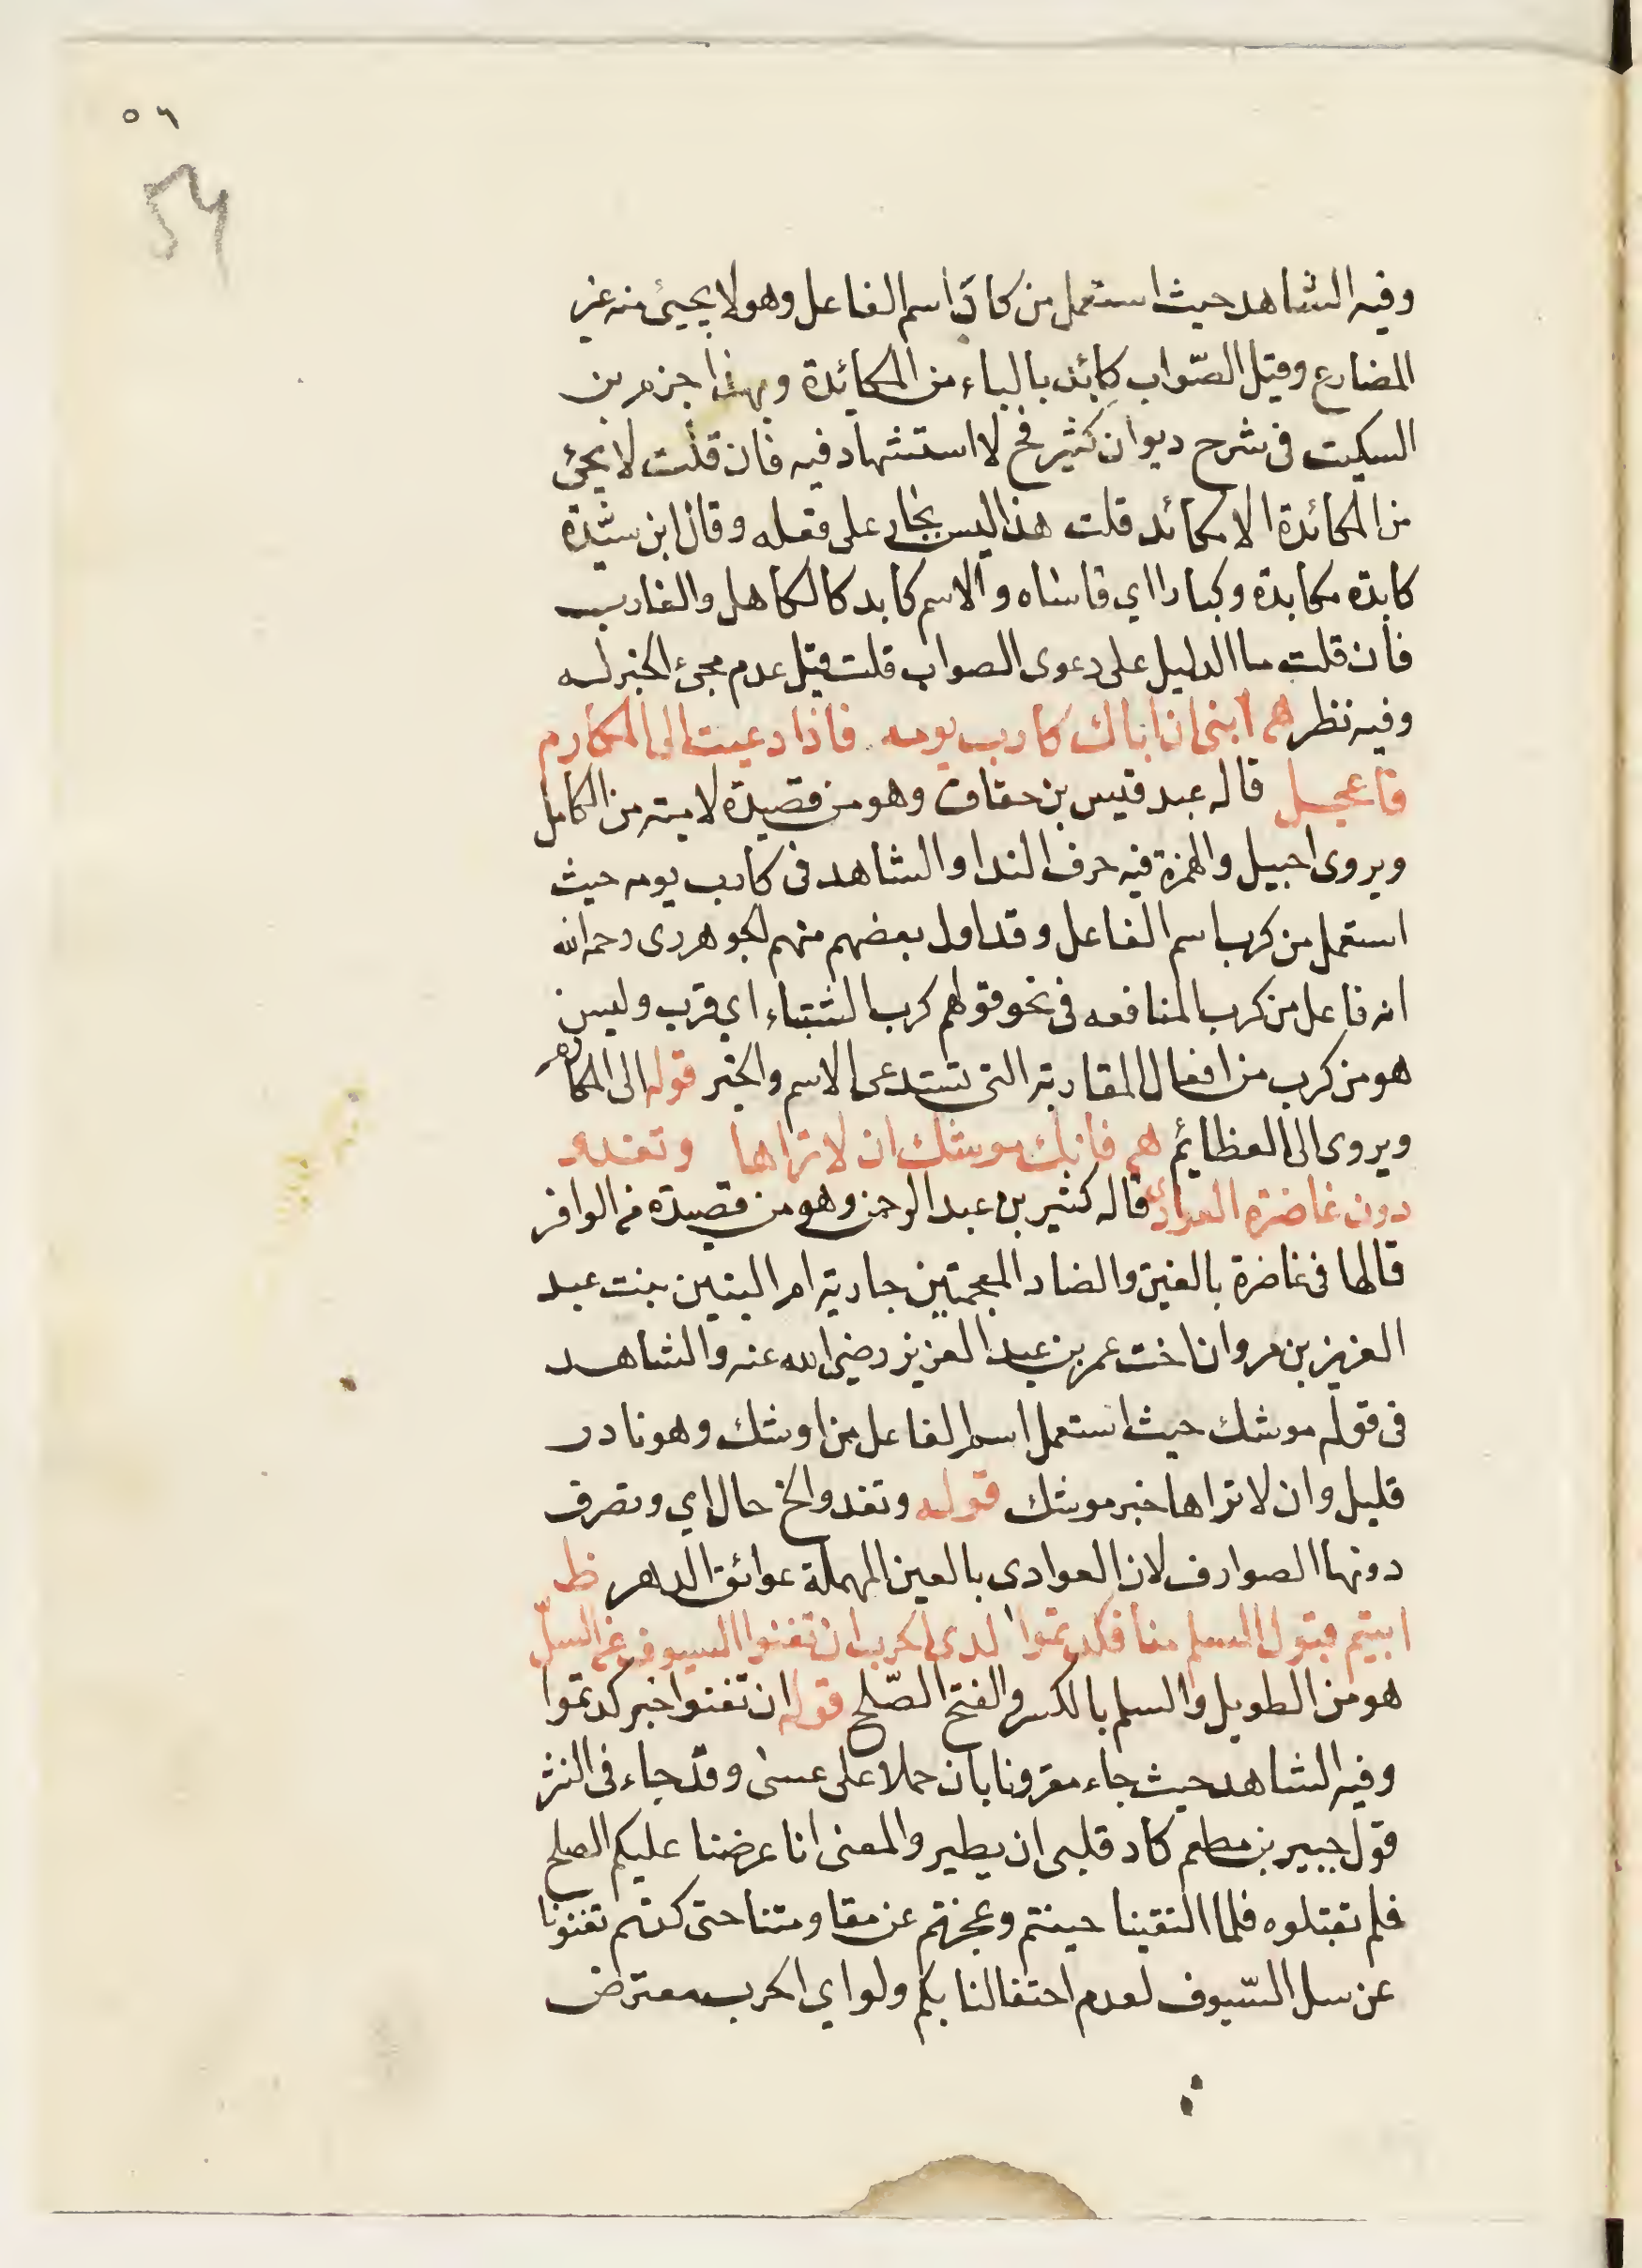 ٥٦
54
وفيه الشاهد حيث استعمل من كاد اسم الفاعل وهو لا يجيئ منه غير
المضارع وقيل الصّواب كابد بالباء من المكائدة وبهذا جزم بن
السكيت في شرح ديوان كثير فح لا استشهاد فيه فان قلت لا يجئ
من المكائدة الا مكائد قلت هذا ليس بجار على فعله وقال ابن سيدة
كابده مكابدة وكبادا اي قاساه والاسم كابد كالكاهل والغارب
فان قلت ما الدليل على دعوى الصواب قلت قيل عدم مجئ الخبر له
وفيه نظر هم ابني ان اباك كارب يومه فاذا دعيت الى المكارم
فاعجل قاله عبد قيس بن خفاف وهو من قصيدة لامية من الكامل
ويروى اجبيل والهمزة فيه حرف الندا والشاهد في كارب يومه حيث
استعمل من كرب اسم الفاعل وقد اول بعضهم منهم الجوهري رحمه الله
انه فاعل من كرب المنافعه في نحو قولهم كرب الشتاء اي قرب وليس
هو من كرب من افعال المقاربة التي تستدعى الاسم والخبر قوله الى المكاره
ويروى الى العظائم هم فانك موشك ان لا تراها وتغدو
دون غاضرة العوادي قاله كثير بن عبد الرحمن وهو من قصيدة من الوافر
قالها في غاضرة بالغين والضاد المعجمتين جارية ام البنين بنت عبد
العزيز بن مروان اخت عمر بن عبد العزيز رضي الله عنه والشاهد
في قوله موشك حيث استعمل اسم الفاعل من اوشك وهو نادر
قليل وان لا تراها خبر موشك قوله وتغدو الخ حال اي وتصرف
دونها الصوارف لان العوادى بالعين المهملة عوائق الدهر ظ
ابيتم قبول السلم منا فكدتموا لدى الحرب ان تغنوا السيوف عن السلّ
هو من الطويل والسلم بالكسر والفتح الصّلح قوله ان تغنوا خبر كدتموا
وفيه الشاهد حيث جاء مقرونا بان حملا على عسى وقد جاء في النثر
قول جبير بن مطعم كاد قلبى ان يطير والمعنى انا عرضنا عليكم الصلح
فلم تقبلوه فلما التقينا جبنتم وعجزتم عن مقاومتنا حتى كدتم تغنونا
عن سل السّيوف لعدم احتفالنا بكم ولو اي الحرب معترض